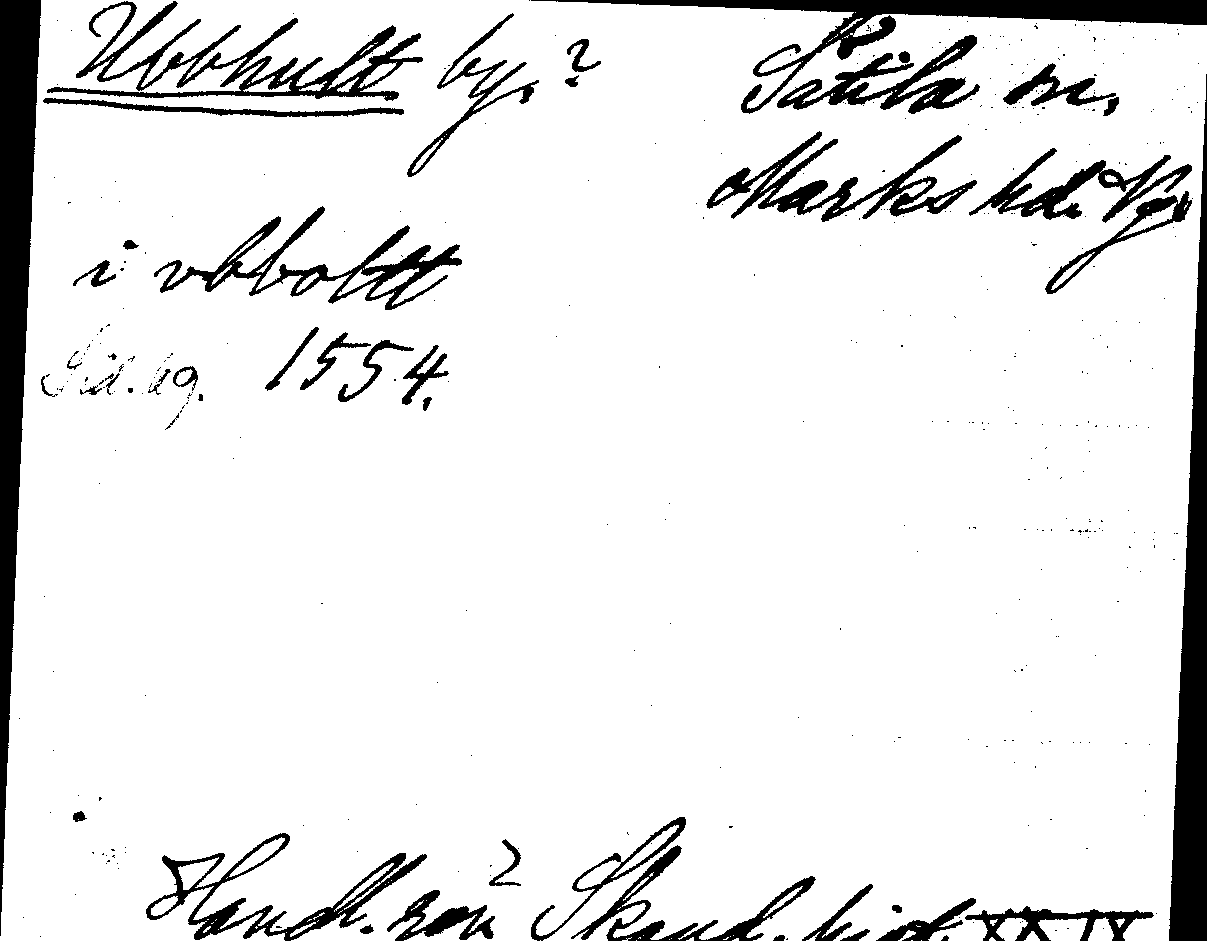 Ubbhult by.?
Sätila sn.
Marks hd. Vg.
i vbboltt
1554.
Handl. rör² Skand. hist. XXIX